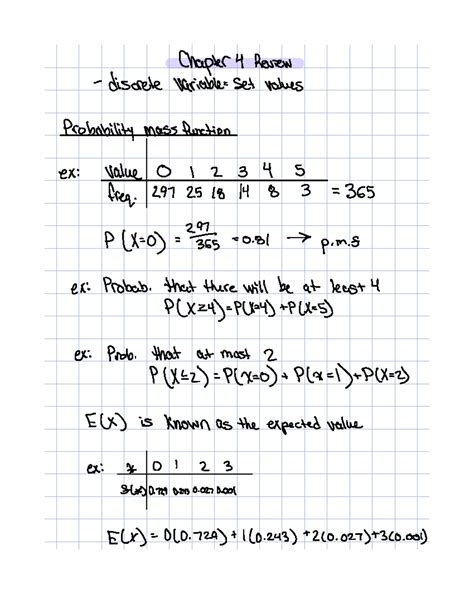 Chapter 4 Review
- discrete variable= set values
Probability mass function
ex: value 0 1 2 3 4 5
freq. 297 25 18 14 8 3 = 365
P(X=0) = 297/365 = 0.81 → p.m.f
ex: Probab. that there will be at least 4
P(X≥4)=P(X=4)+P(X=5)
ex: Prob. that at most 2
P(X≤2)=P(X=0)+P(x=1)+P(X=2)
E(X) is known as the expected value
ex: x 0 1 2 3
0.027 0.001
E(X)=0(0.729)+1(0.243)+2(0.027)+3(0.001)